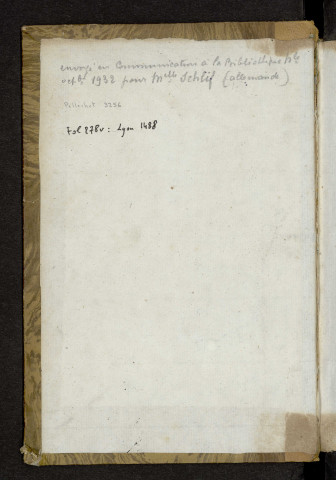 envoyé en Communication à la Bibliothèque Nle
octbre 1933 pour Melle Schlif (allemande)
Pellechet 3336
Fol 278v : Lyon 1488